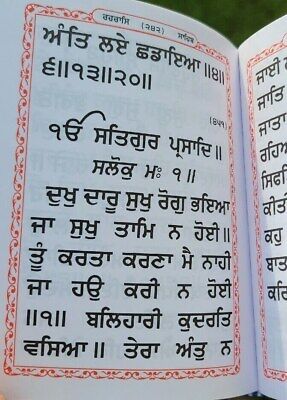 ਰਹਰਾਸਿ (੨੪੨) ਸਾਹਿਬ
ਅੰਤਿ ਲਏ ਛਡਾਇਆ ॥੪॥
੬॥੧੩॥੨੦॥
(੪੫੧)
ੴ ਸਤਿਗੁਰ ਪ੍ਰਸਾਦਿ॥
ਸਲੋਕੁ ਮਃ ੧॥
ਦੁਖੁ ਦਾਰੂ ਸੁਖੁ ਰੋਗੁ ਭਇਆ
ਜਾ ਸੁਖੁ ਤਾਮਿ ਨ ਹੋਈ॥
ਤੂੰ ਕਰਤਾ ਕਰਣਾ ਮੈ ਨਾਹੀ
ਜਾ ਹਉ ਕਰੀ ਨ ਹੋਈ
॥੧॥ ਬਲਿਹਾਰੀ ਕੁਦਰਤਿ
ਵਸਿਆ॥ ਤੇਰਾ ਅੰਤੁ ਨ
ਜਾਈ
ਜਾਤਿ
ਜਾਤਾ
ਰਹਿਆ
ਸਿਫਤਿ
ਕੀਤੀ
ਕਹੁ
ਬਾਤ